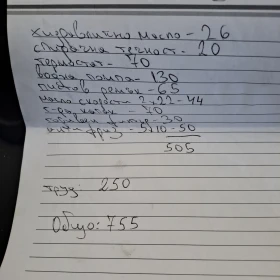 хидравлично масло - 26
спирачна течност - 20
термостат - 70
водна помпа - 130
пистов ремък - 65
масло скорости 2x22 - 44
70
30
5x10 - 50
505
труд: 250
Общо: 755